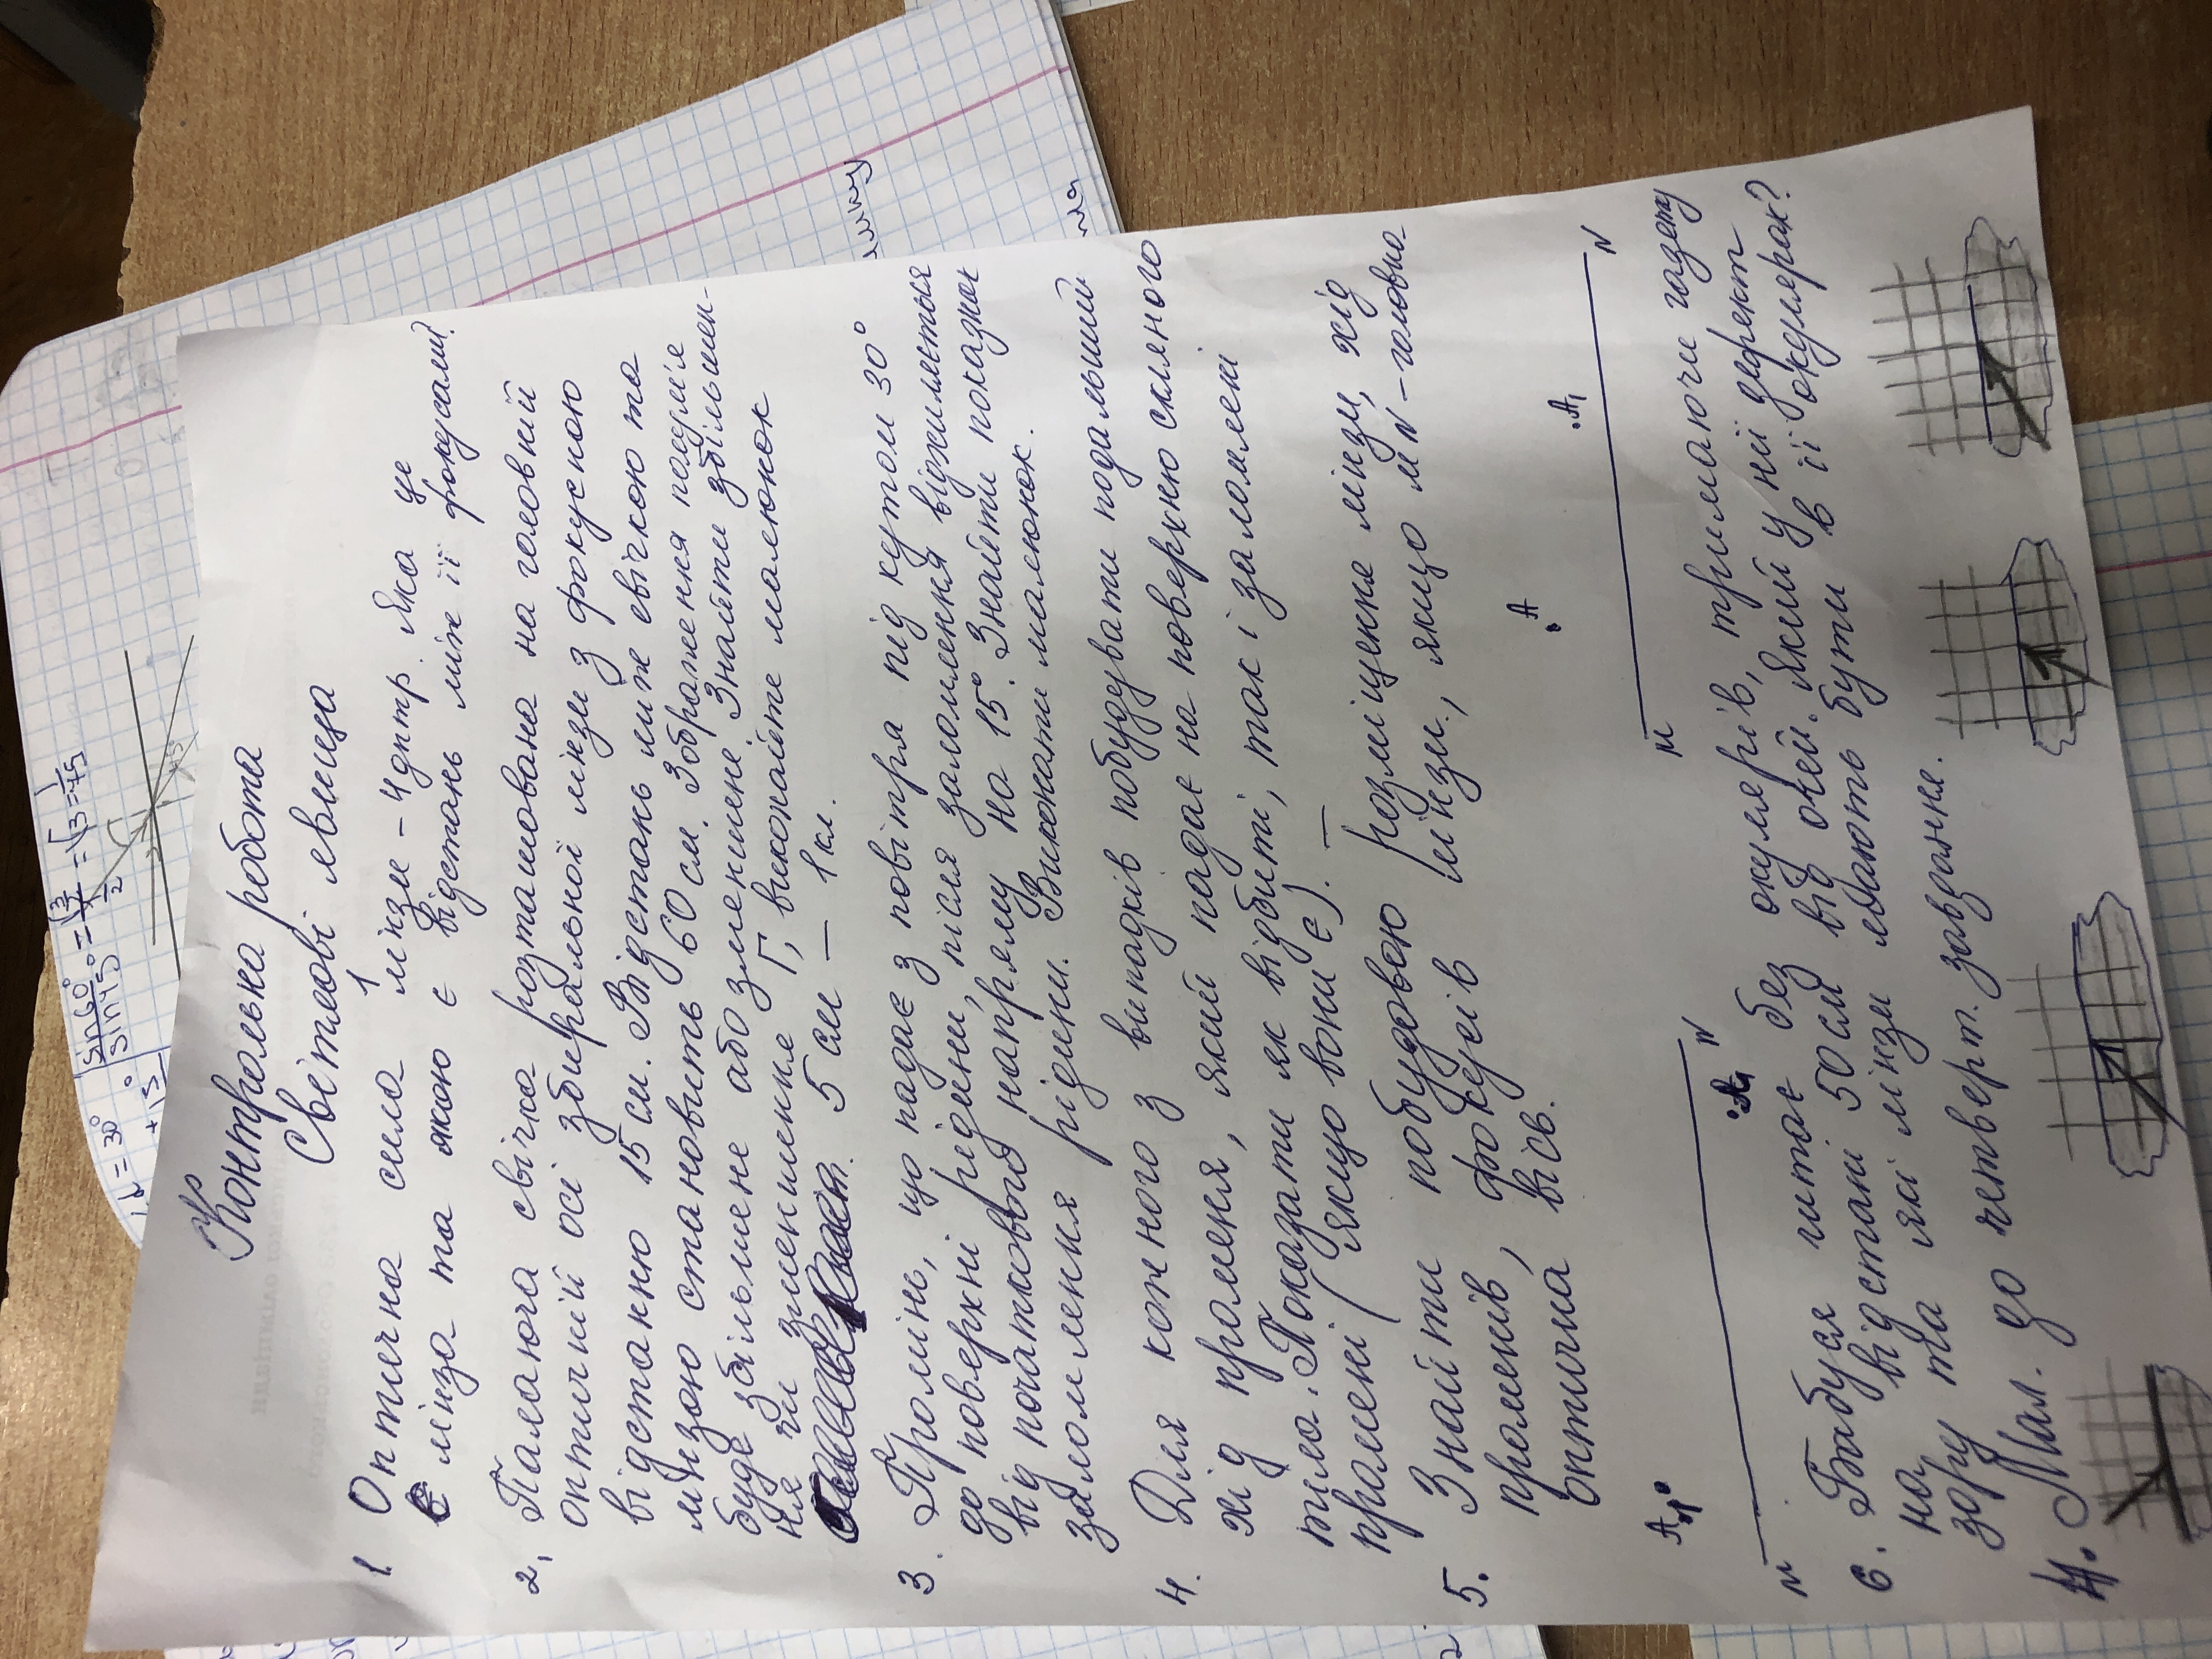 ∠d = 30°
+ 15°
sin60° / sin45° = √3/2 / 1/2 = √3 = 1/75
45°
Контролька робота
Світлові явища
1. Оптична сила 1 лінзи – 4 дптр. Яка це
лінза та якою є відстань між її фокусами?
2. Палаюча свічка розташована на головній
оптичній осі збиральної лінзи з фокусною
відстанню 15 см. Відстань між свічкою та
лінзою становить 60 см. Зображення полум'я
буде збільшене або зменшене. Знайти збільшен-
ня чи зменшення Г, виконайте малюнок
5 см — 1 кл.
3. Промінь, що падає з повітря під кутом 30°
до поверхні рідини, після заломлення відхиляється
від початкового напряму на 15°. Знайти показник
заломлення рідини. Виконати малюнок.
4. Для кожного з випадків побудувати подальший
хід променя, який падає на поверхню скляного
тіла. Показати як відбиті, так і заломлені
промені (якщо вони є). —
5. Знайти побудовою розміщення лінзи, хід
променів, фокусів лінзи, якщо MN – головна
оптична вісь.
A
A₁
M
N
A
M
N
A₁
6. Бабуся читає без окулярів, тримаючи газету
на відстані 50 см від очей. Який у неї дефект
зору та які лінзи мають бути в її окулярах?
4. Мал. до четверт. завдання.